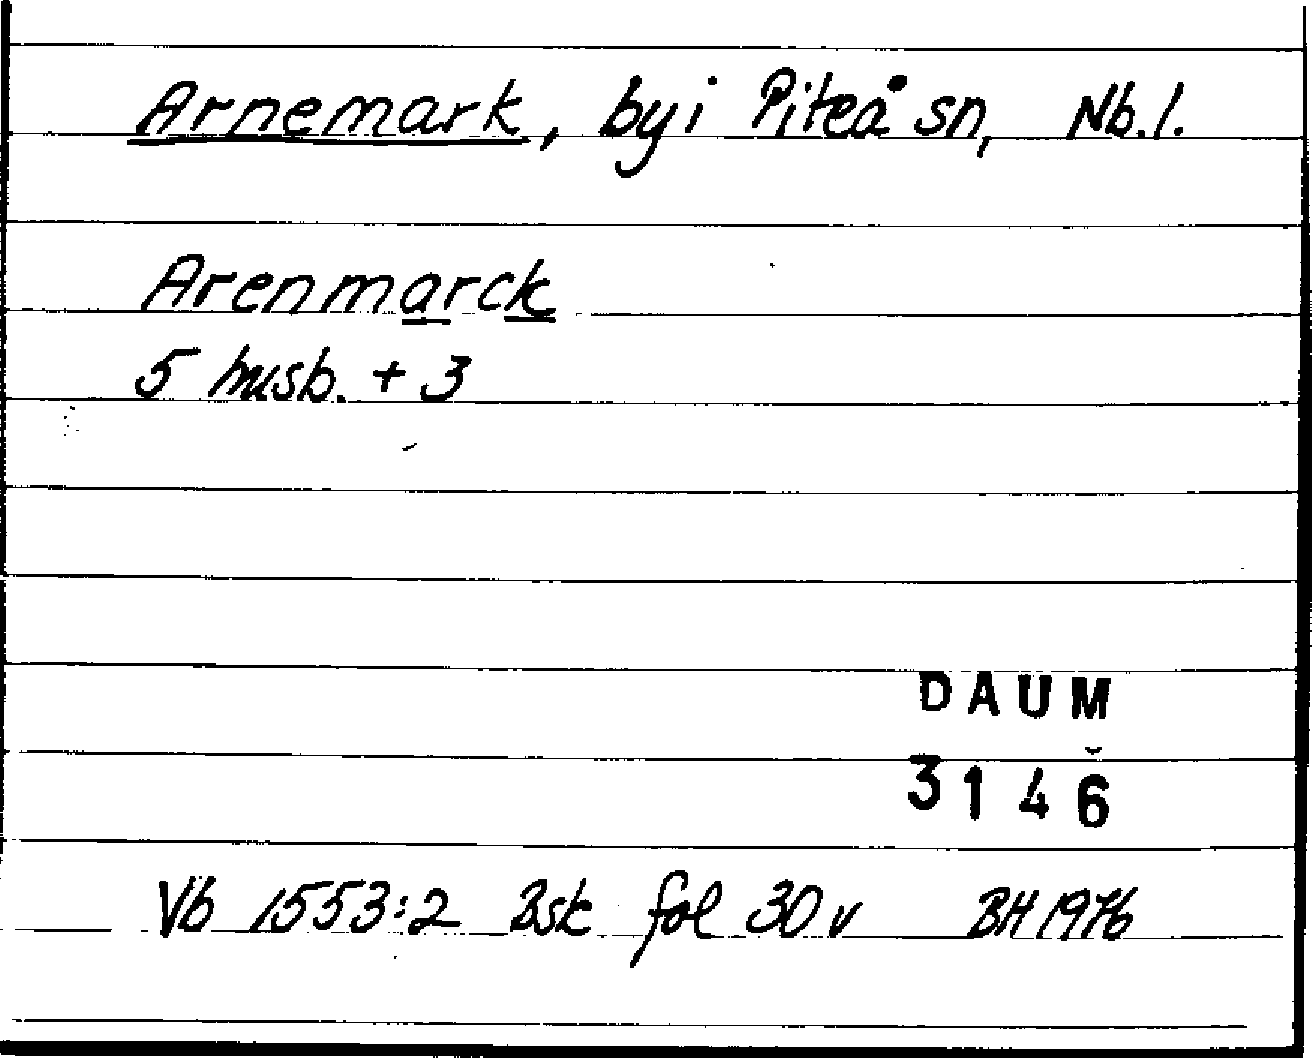 Arnemark, by i Piteå sn, Nb.l.
Arenmarck
5 husb. + 3
DAUM
3146
Vb 1553:2 Bsk fol 30v BH 1976